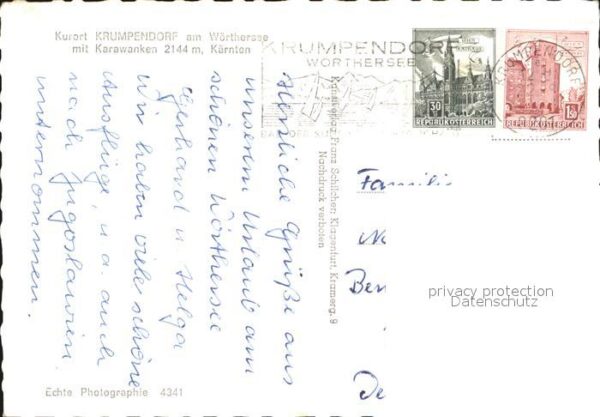 Kurort KRUMPENDORF am Wörthersee
mit Karawanken 2144 m, Kärnten
KRUMPENDORF
WÖRTHERSEE
30
REPUBLIK ÖSTERREICH
KRUMPENDORF
REPUBLIK ÖSTERREICH
Herzliche Grüße aus
unserem Urlaub am
schönen Wörthersee
Gerhard u. Helga
Wir haben viele schöne
Ausflüge, u. a. auch
nach Jugoslawien
unternommen.
Kunstverlag Franz Schilchen, Klagenfurt, Kramerg. 9
Nachdruck verboten
Familie
privacy protection
Datenschutz
Echte Photographie 4341